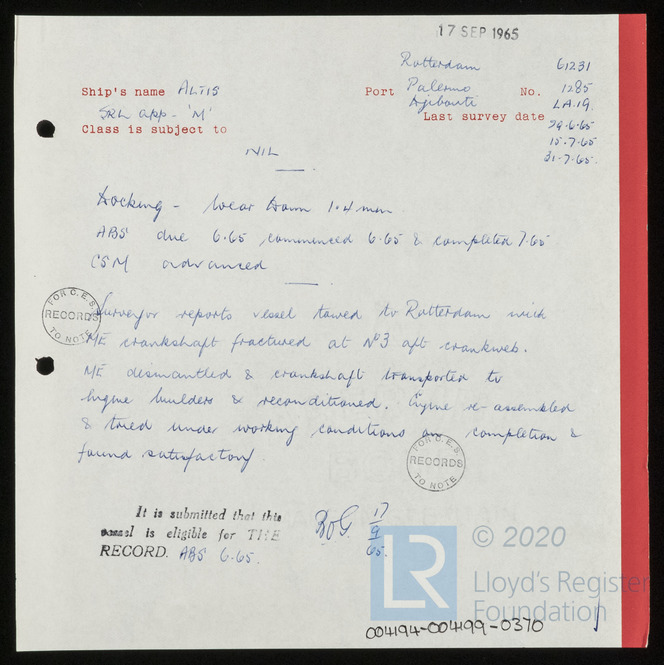 17 SEP 1965
Rotterdam 61231
Ship's name ALTIS Port Palermo No. 1285
Djibouti LA.19.
SRL app - 'M' Last survey date 29-6-65
Class is subject to 15.7.65
NIL 31-7-65.
Docking - Wear down 1.4 mm
ABS due 6.65 commenced 6.65 & completed 7.65
CSM advanced
Surveyor reports vessel towed to Rotterdam with
ME crankshaft fractured at No3 aft crankweb.
ME dismantled & crankshaft transported to
engine builders & reconditioned. Engine re-assembled
& tried under working conditions on completion &
found satisfactory.
FOR C.E.S. RECORDS TO NOTE
FOR C.E.S. RECORDS TO NOTE
It is submitted that this
vessel is eligible for THE
RECORD. ABS 6.65.
17
9
65.
LR
© 2020
Lloyd's Register
Foundation
004194-004199-0370